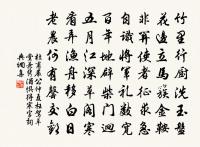 竹里行廚洗玉盤
花邊立馬簇金鞍
非關使者徵求急
自識將軍禮數寬
百年地闢柴門迥
五月江深草閣寒
看弄漁舟移白日
老農何有罄交歡
杜甫嚴公仲夏枉駕草
堂兼攜酒饌得寒字詞
典網書